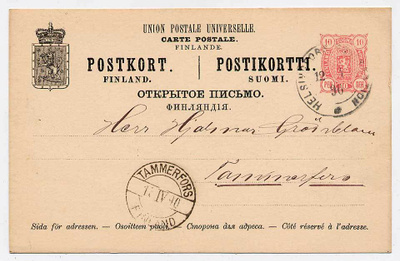 UNION POSTALE UNIVERSELLE.
CARTE POSTALE.
FINLANDE.
POSTKORT. POSTIKORTTI.
FINLAND. SUOMI.
ОТКРЫТОЕ ПИСЬМО.
ФИНЛЯНДІЯ.
10 10
Herr Hjalmar
Tammerfors
TAMMERFORS
IV
FINLAND
Sida för adressen. - Osoitteen puoli. - Сторона для адреса. - Côté réservé à l'adresse.